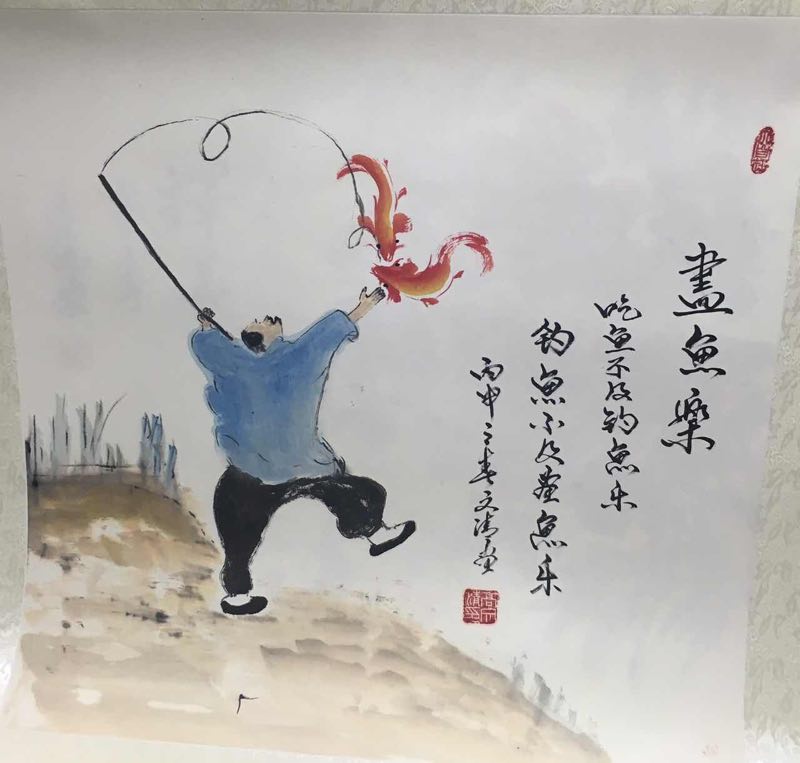 畫魚樂
吃鱼不及钓魚乐
钓魚不及畫魚乐
丙申之春文清畫